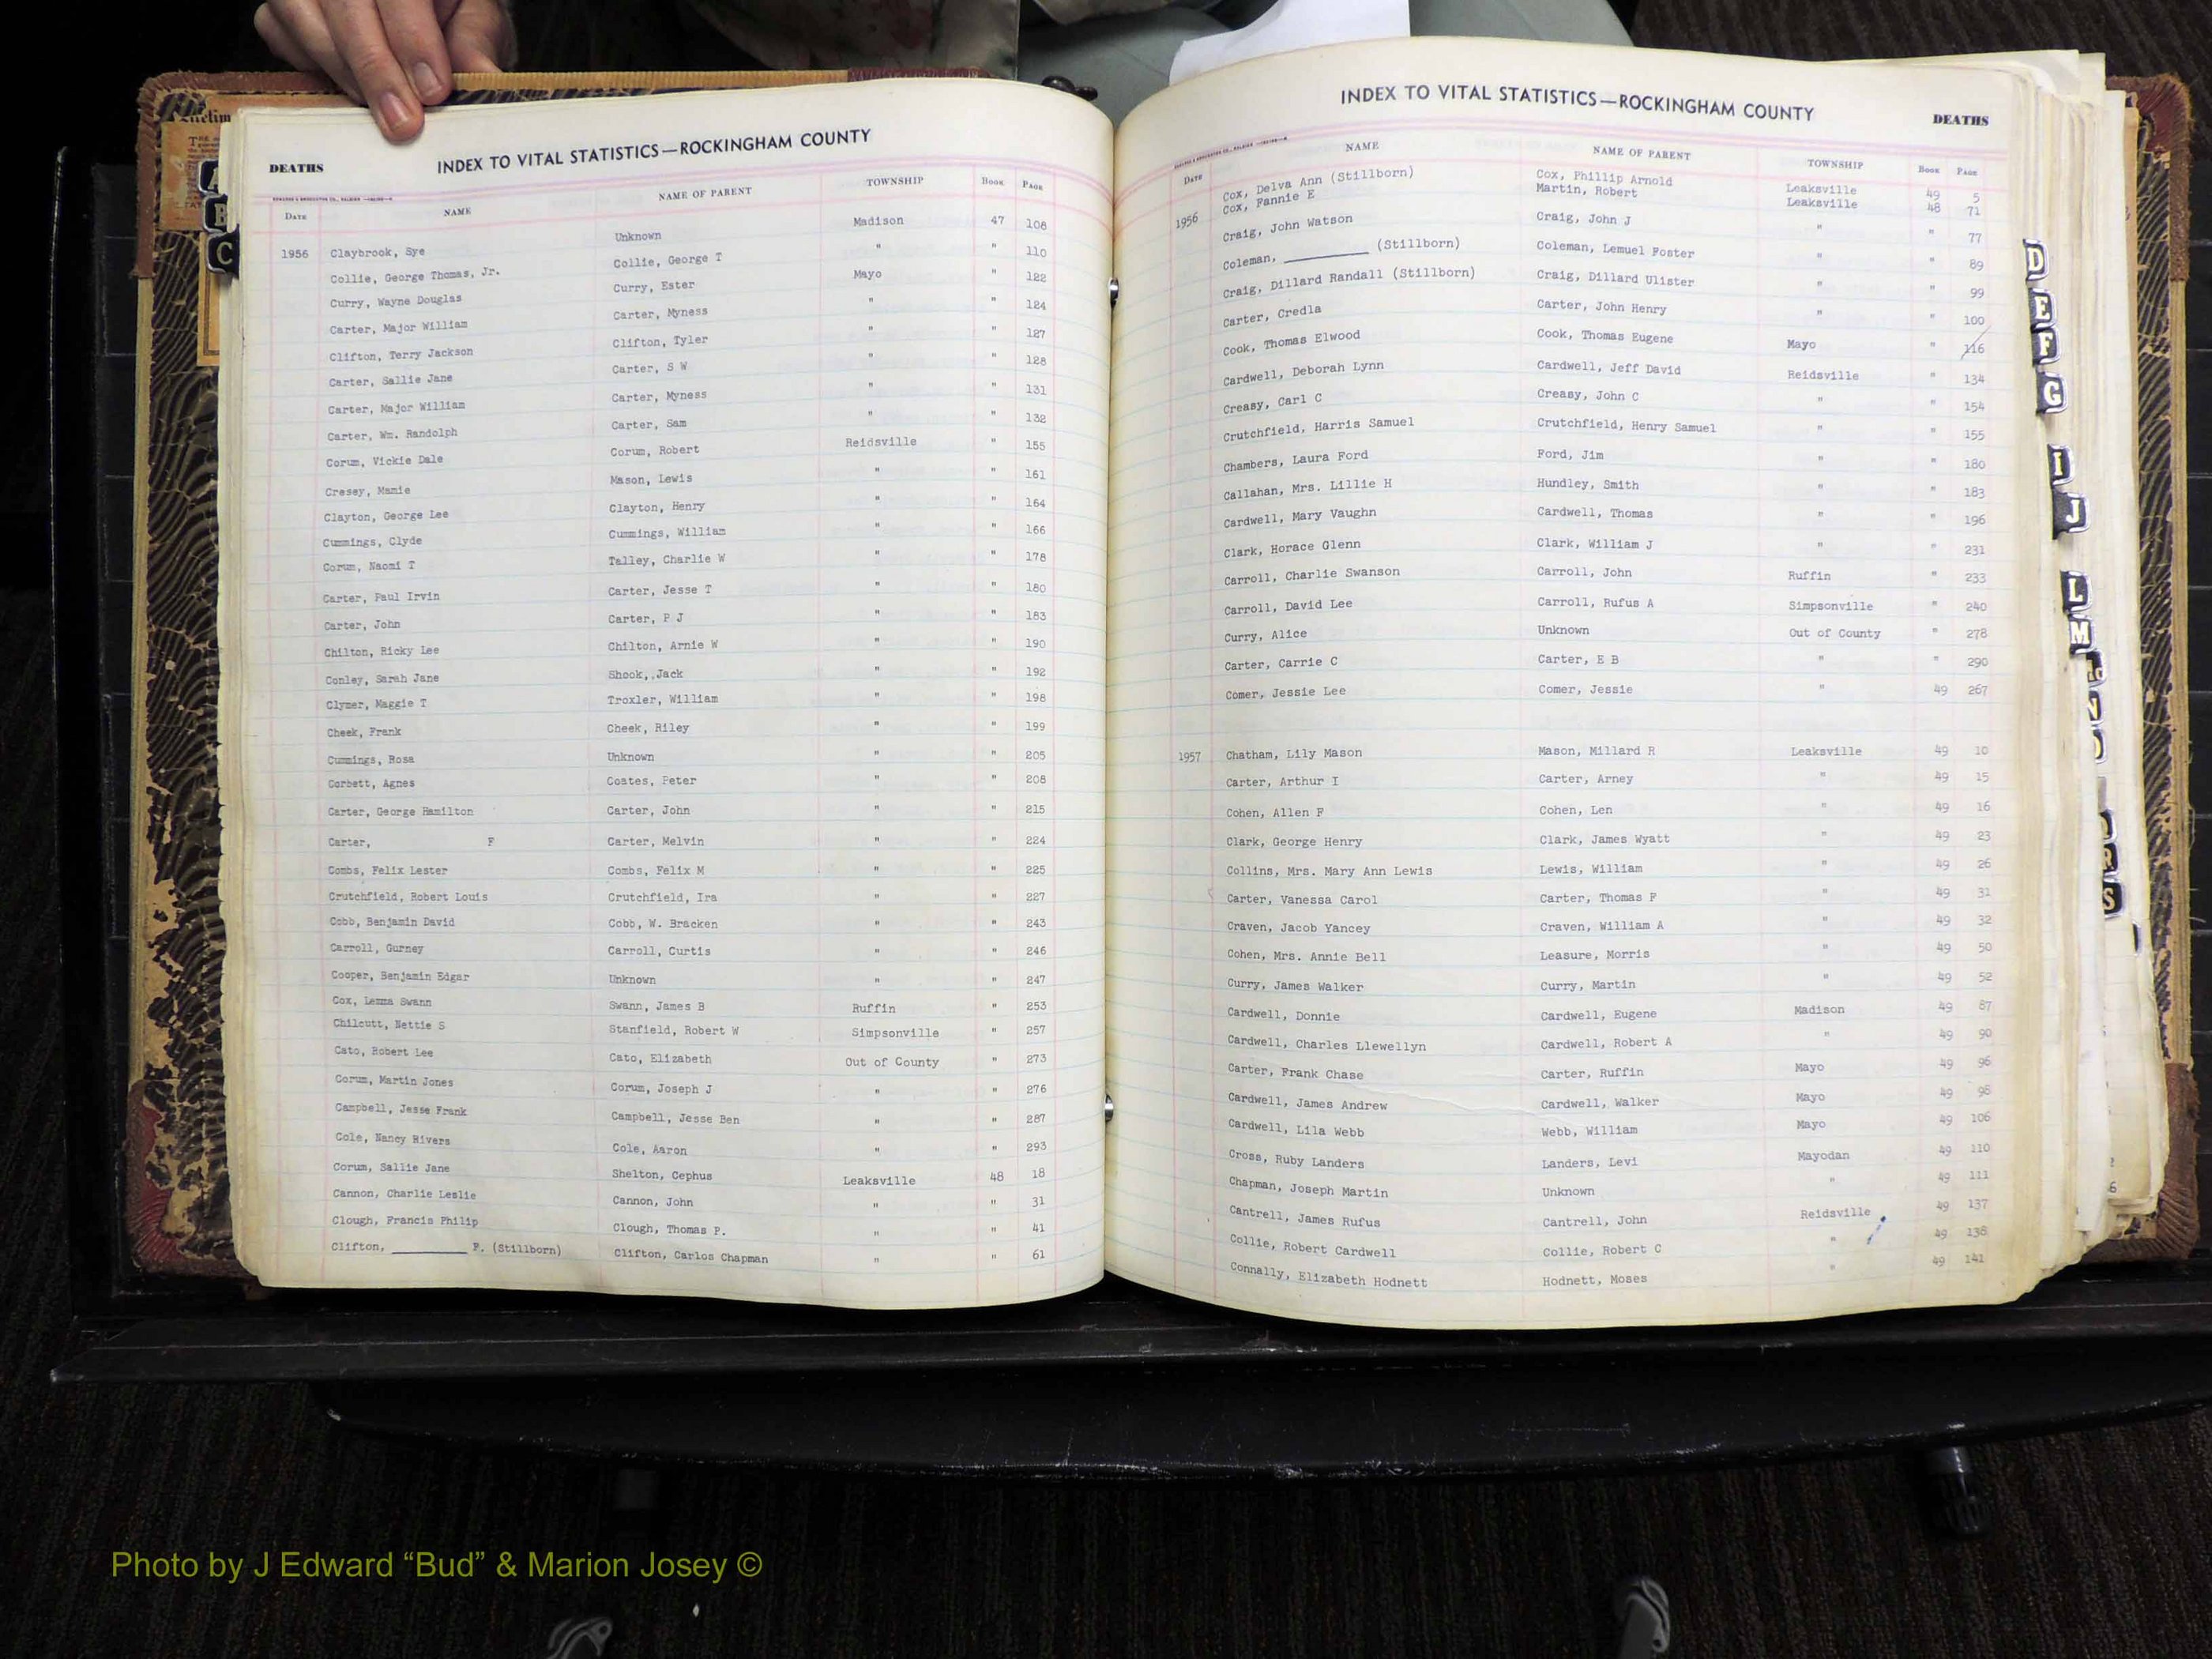 INDEX TO VITAL STATISTICS—ROCKINGHAM COUNTY
DEATHS
DATE NAME NAME OF PARENT TOWNSHIP BOOK PAGE
1956 Claybrook, Sye Unknown Madison 47 108
Collie, George Thomas, Jr. Collie, George T " " 110
Curry, Wayne Douglas Curry, Ester Mayo " 122
Carter, Major William Carter, Myness " " 124
Clifton, Terry Jackson Clifton, Tyler " " 127
Carter, Sallie Jane Carter, S W " " 128
Carter, Major William Carter, Myness " " 131
Carter, Wm. Randolph Carter, Sam " " 132
Corum, Vickie Dale Corum, Robert Reidsville " 155
Cresey, Mamie Mason, Lewis " " 161
Clayton, George Lee Clayton, Henry " " 164
Cummings, Clyde Cummings, William " " 166
Corum, Naomi T Talley, Charlie W " " 178
Carter, Paul Irvin Carter, Jesse T " " 180
Carter, John Carter, P J " " 183
Chilton, Ricky Lee Chilton, Arnie W " " 190
Conley, Sarah Jane Shook, Jack " " 192
Clymer, Maggie T Troxler, William " " 198
Cheek, Frank Cheek, Riley " " 199
Cummings, Rosa Unknown " " 205
Corbett, Agnes Coates, Peter " " 208
Carter, George Hamilton Carter, John " " 215
Carter, F Carter, Melvin " " 224
Combs, Felix Lester Combs, Felix M " " 225
Crutchfield, Robert Louis Crutchfield, Ira " " 227
Cobb, Benjamin David Cobb, W. Bracken " " 243
Carroll, Gurney Carroll, Curtis " " 246
Cooper, Benjamin Edgar Unknown " " 247
Cox, Lemma Swann Swann, James B Ruffin " 253
Chilcutt, Nettie S Stanfield, Robert W Simpsonville " 257
Cato, Robert Lee Cato, Elizabeth Out of County " 273
Corum, Martin Jones Corum, Joseph J " " 276
Campbell, Jesse Frank Campbell, Jesse Ben " " 287
Cole, Nancy Rivers Cole, Aaron " " 293
Corum, Sallie Jane Shelton, Cephus Leaksville 48 18
Cannon, Charlie Leslie Cannon, John " " 31
Clough, Francis Philip Clough, Thomas P. " " 41
Clifton, ________ P. (Stillborn) Clifton, Carlos Chapman " " 61
INDEX TO VITAL STATISTICS—ROCKINGHAM COUNTY
DEATHS
DATE NAME NAME OF PARENT TOWNSHIP BOOK PAGE
Cox, Delva Ann (Stillborn) Cox, Phillip Arnold Leaksville 49 5
1956 Cox, Fannie E Martin, Robert Leaksville 48 71
Craig, John Watson Craig, John J " " 77
Coleman, ________ (Stillborn) Coleman, Lemuel Foster " 89
Craig, Dillard Randall (Stillborn) Craig, Dillard Ulister " " 99
Carter, Credla Carter, John Henry " " 100
Cook, Thomas Elwood Cook, Thomas Eugene Mayo " 116
Cardwell, Deborah Lynn Cardwell, Jeff David Reidsville " 134
Creasy, Carl C Creasy, John C " " 154
Crutchfield, Harris Samuel Crutchfield, Henry Samuel " " 155
Chambers, Laura Ford Ford, Jim " " 180
Callahan, Mrs. Lillie H Hundley, Smith " " 183
Cardwell, Mary Vaughn Cardwell, Thomas " " 196
Clark, Horace Glenn Clark, William J " " 231
Carroll, Charlie Swanson Carroll, John Ruffin " 233
Carroll, David Lee Carroll, Rufus A Simpsonville " 240
Curry, Alice Unknown Out of County " 278
Carter, Carrie C Carter, E B " " 290
Comer, Jessie Lee Comer, Jessie " 49 267
1957 Chatham, Lily Mason Mason, Millard R Leaksville 49 10
Carter, Arthur I Carter, Arney " 49 15
Cohen, Allen F Cohen, Len " 49 16
Clark, George Henry Clark, James Wyatt " 49 23
Collins, Mrs. Mary Ann Lewis Lewis, William " 49 26
Carter, Vanessa Carol Carter, Thomas F " 49 31
Craven, Jacob Yancey Craven, William A " 49 32
Cohen, Mrs. Annie Bell Leasure, Morris " 49 50
Curry, James Walker Curry, Martin " 49 52
Cardwell, Donnie Cardwell, Eugene Madison 49 87
Cardwell, Charles Llewellyn Cardwell, Robert A " 49 90
Carter, Frank Chase Carter, Ruffin Mayo 49 96
Cardwell, James Andrew Cardwell, Walker Mayo 49 98
Cardwell, Lila Webb Webb, William Mayo 49 106
Cross, Ruby Landers Landers, Levi Mayodan 49 110
Chapman, Joseph Martin Unknown " 49 111
Cantrell, James Rufus Cantrell, John Reidsville 49 137
Collie, Robert Cardwell Collie, Robert C " 49 138
Connally, Elizabeth Hodnett Hodnett, Moses " 49 141
A
B
C
D
E
F
G
I
J
L
M
R
S
Photo by J Edward “Bud” & Marion Josey ©